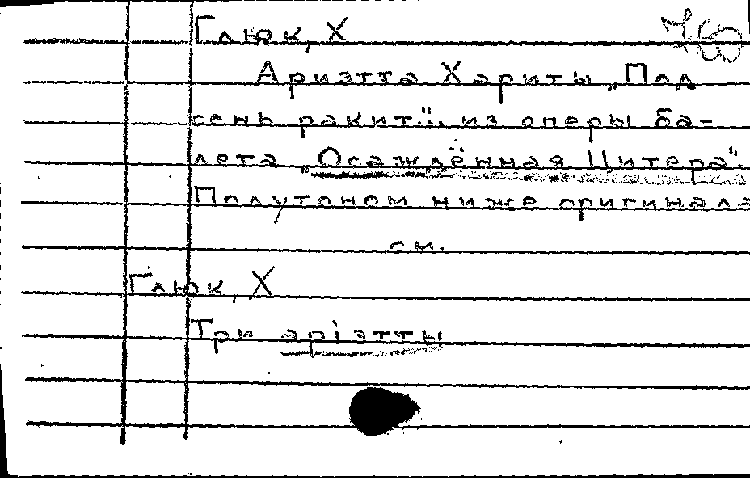 Глюк, Х
Ариэтта Хариты „Под
сень ракит..." из оперы ба-
лета „Осаждённая Цитера".
Полутоном ниже оригинала
см.
Глюк, Х
Три арiэтты